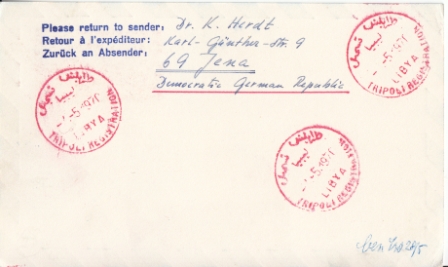 Please return to sender:
Retour à l'expéditeur:
Zurück an Absender:
Dr. K. Herdt
Karl-Günther-Str. 9
69 Jena
Democratic German Republic
طرابلس تسجيل
ليبيا
5.1970
LIBYA
TRIPOLI REGISTRATION
طرابلس تسجيل
ليبيا
5.1970
LIBYA
TRIPOLI REGISTRATION
طرابلس تسجيل
ليبيا
5.1970
LIBYA
TRIPOLI REGISTRATION